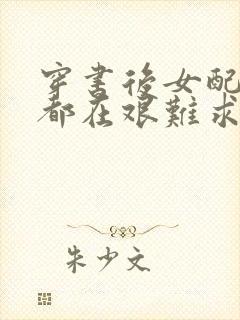 穿書後女配
都在艱難求
朱少文